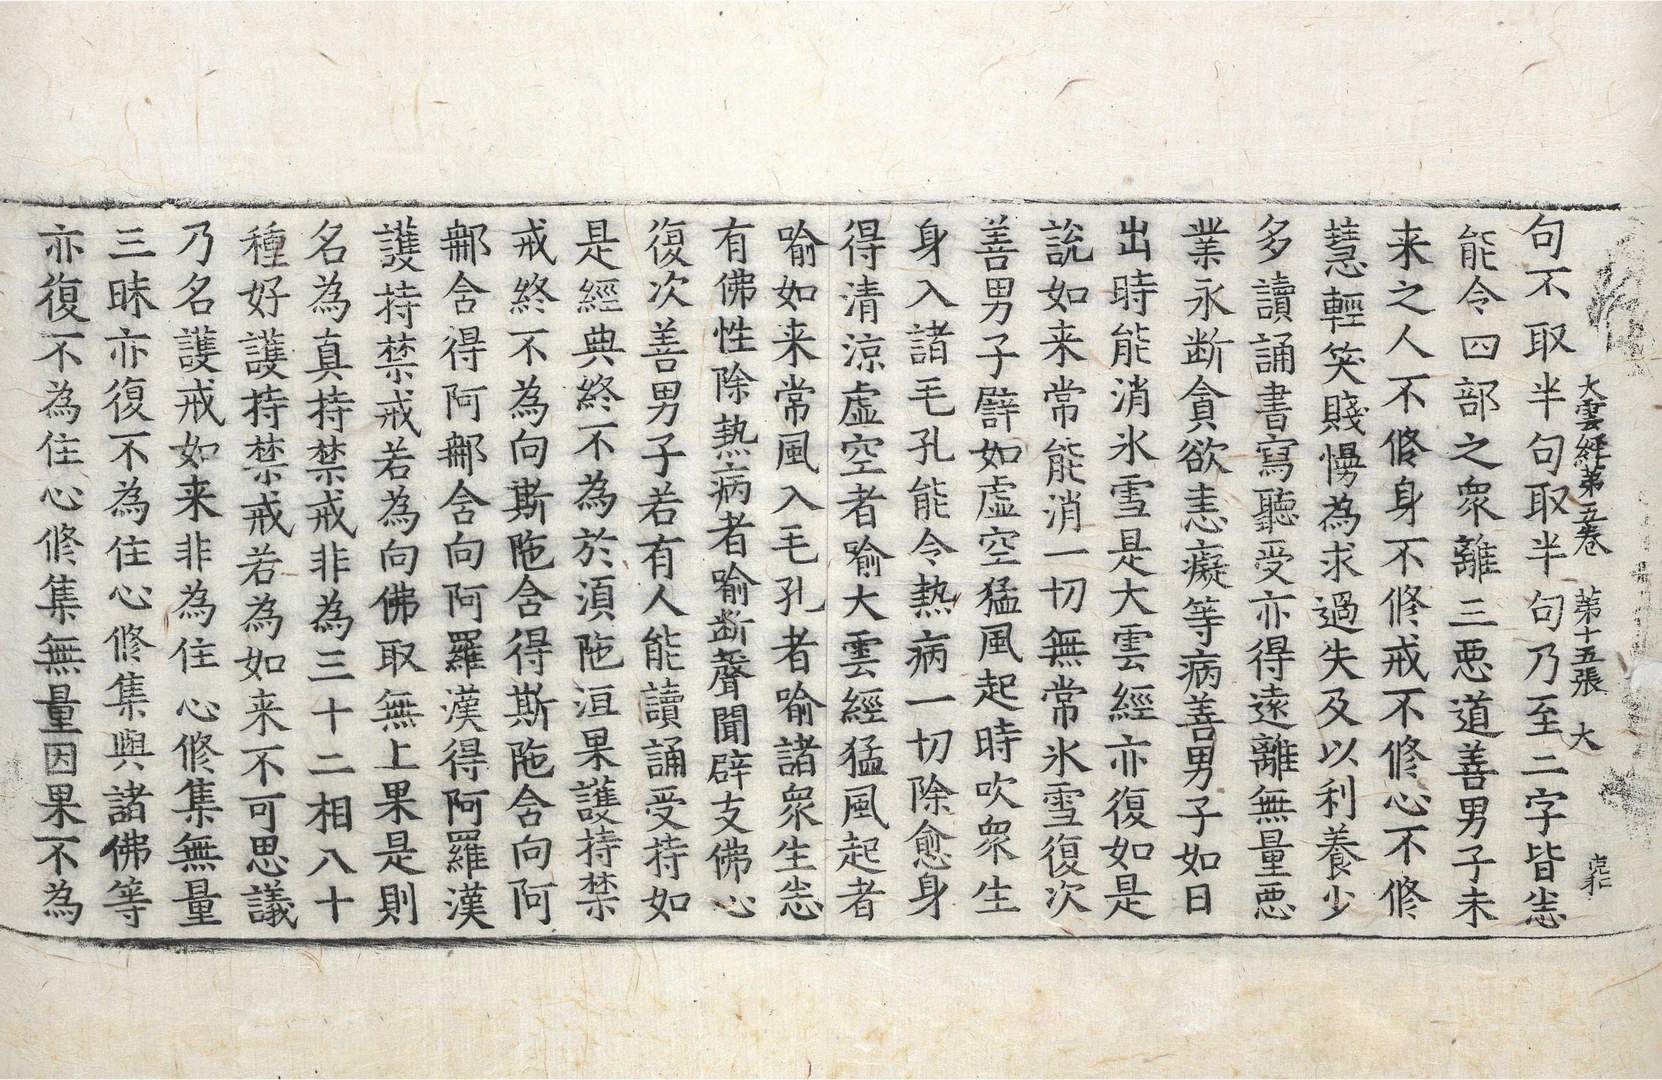 大雲経第五卷 第十五張 大
句不取半句取半句乃至二字皆悉
能令四部之衆離三惡道善男子未
来之人不修身不修戒不修心不修
慧輕笑賤慢為求過失及以利養少
多讀誦書寫聽受亦得遠離無量惡
業永断貪欲恚癡等病善男子如日
出時能消氷雪是大雲經亦復如是
說如来常能消一切無常氷雪復次
善男子譬如虚空猛風起時吹衆生
身入諸毛孔能令熱病一切除愈身
得清涼虚空者喻大雲經猛風起者
喻如来常風入毛孔者喻諸衆生悉
有佛性除熱病者喻断聲聞辟支佛心
復次善男子若有人能讀誦受持如
是經典終不為於湏陁洹果護持禁
戒終不為向斯陁含得斯陁含向阿
𨙻含得阿𨙻含向阿羅漢得阿羅漢
護持禁戒若為向佛取無上果是則
名為真持禁戒非為三十二相八十
種好護持禁戒若為如来不可思議
乃名護戒如来非為住心修集無量
三昧亦復不為住心修集與諸佛等
亦復不為住心修集無量因果不為